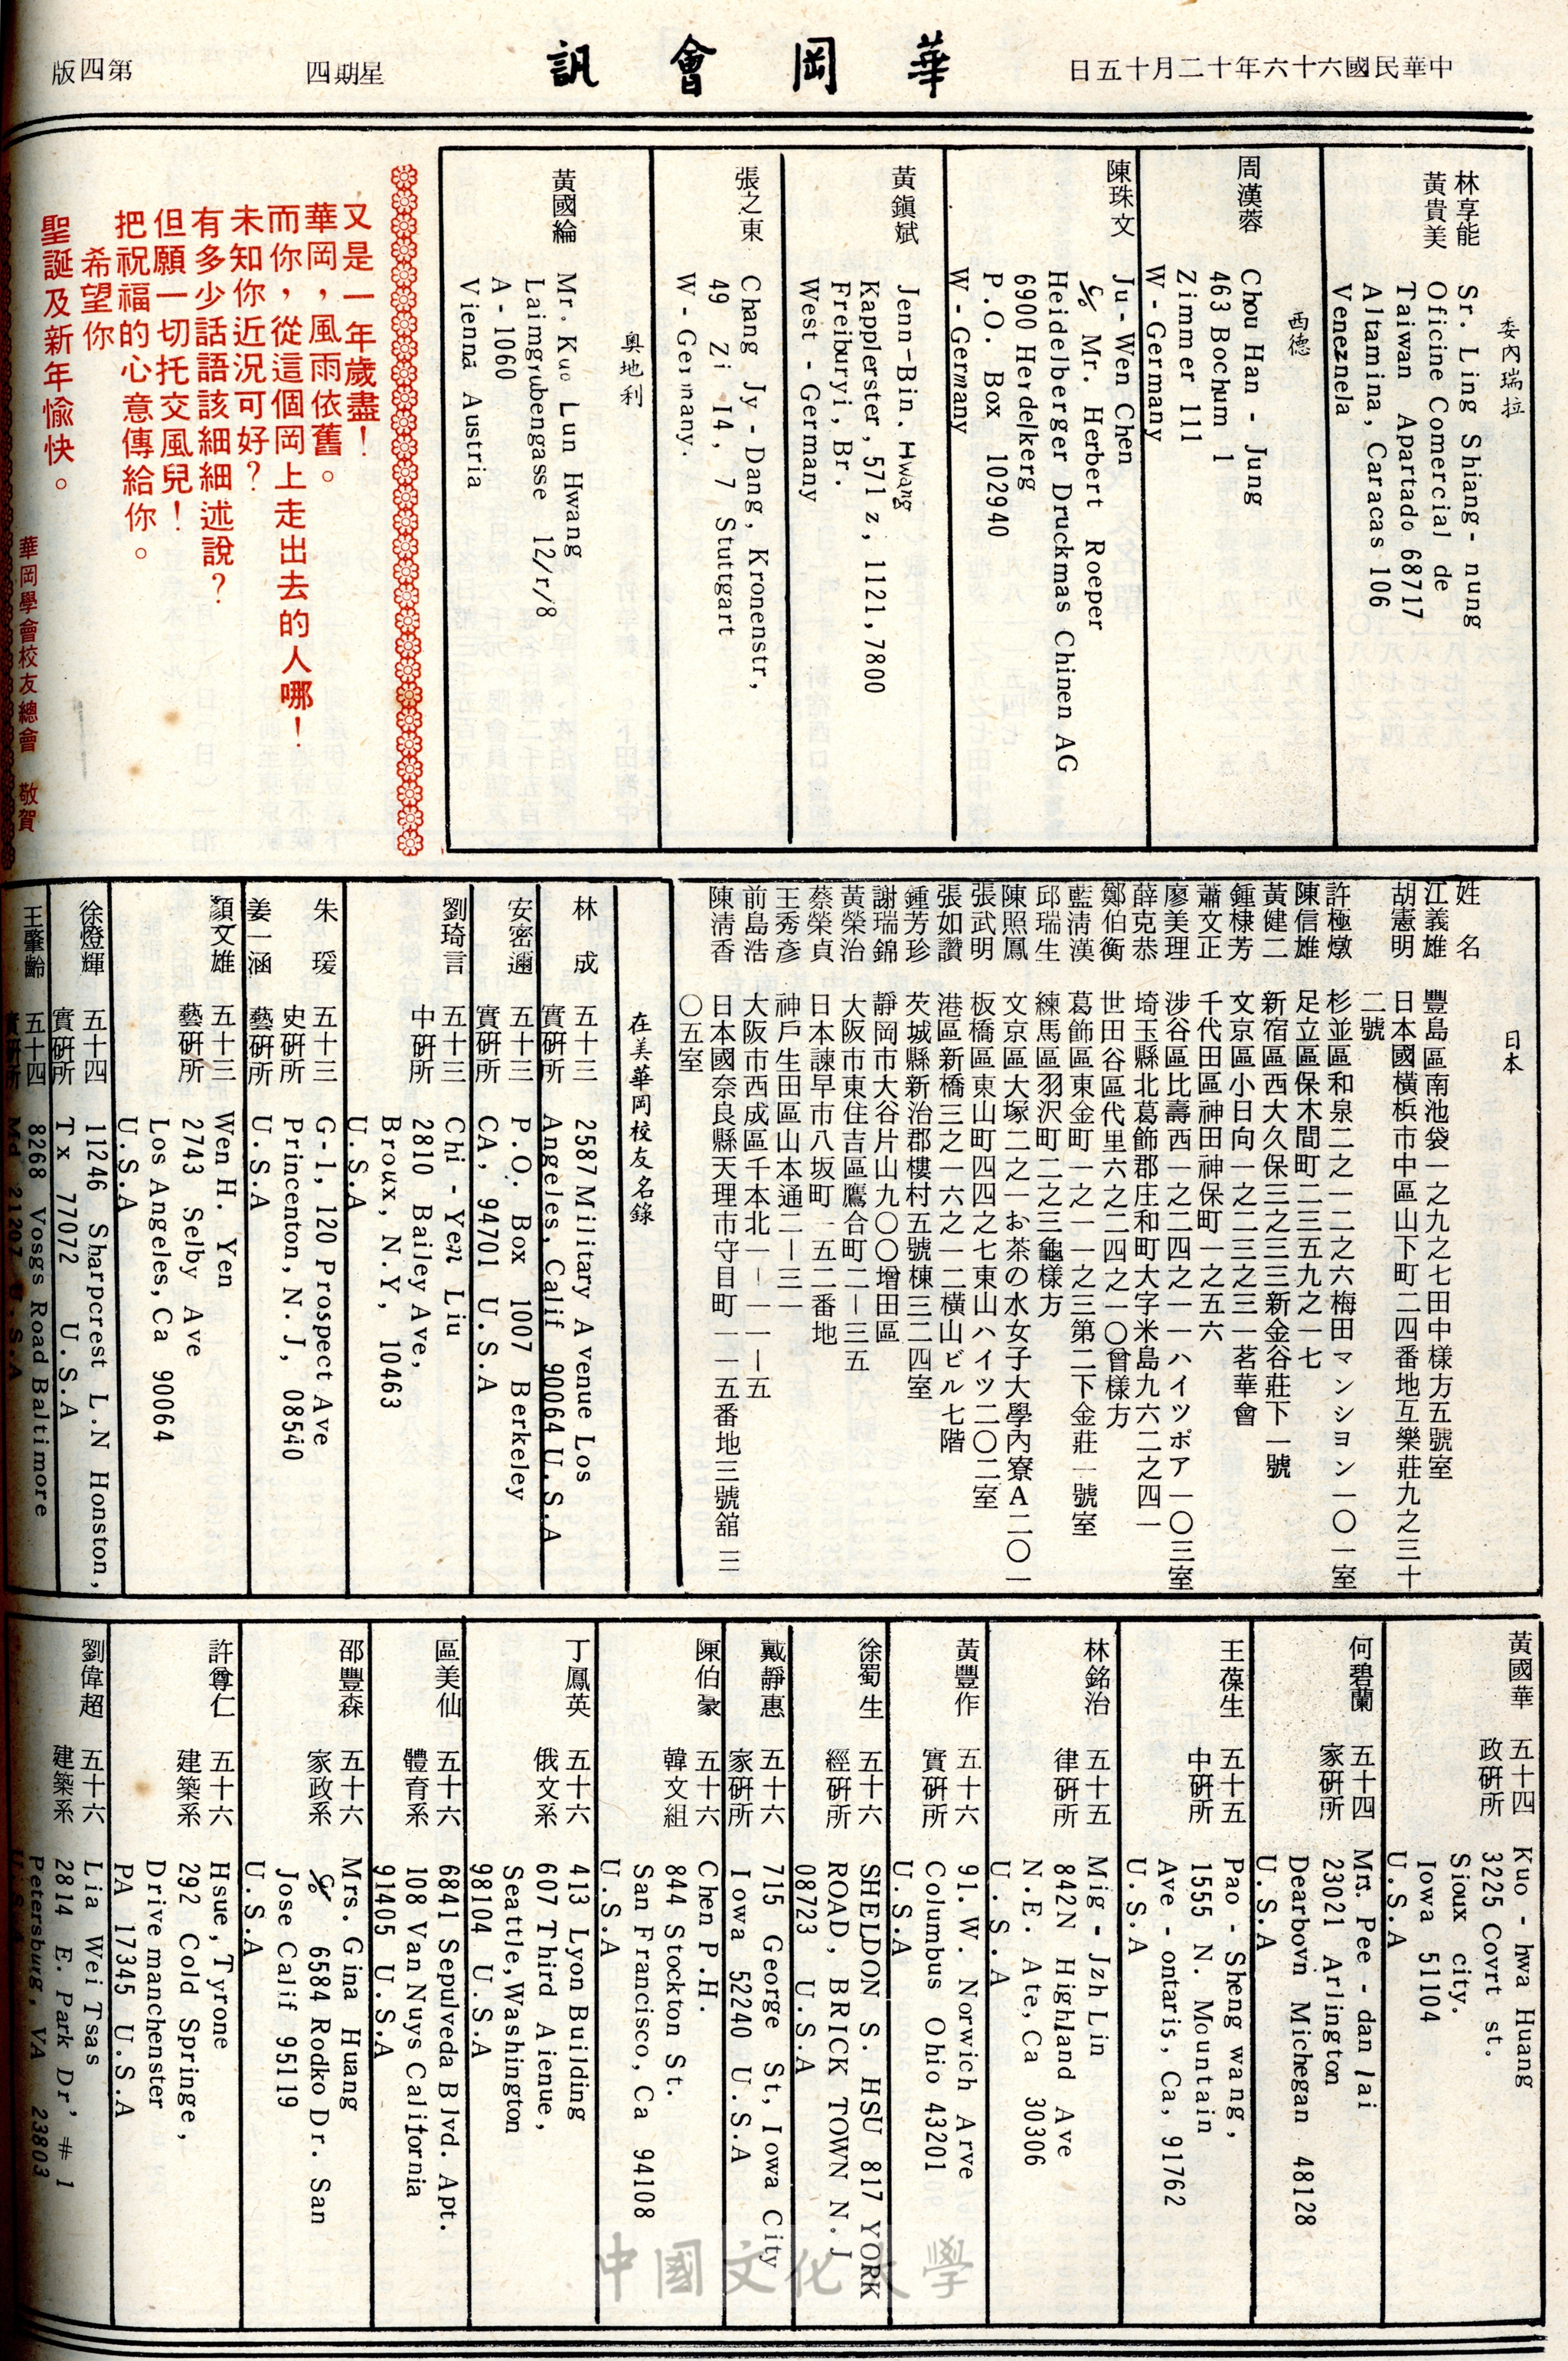 中華民國六十六年十二月十五日
華岡會訊
星期四
第四版
委內瑞拉
林享能
黃貴美
Sr. Ling Shiang - nung
Oficine Comercial de
Taiwan Apartado 68717
Altamina, Caracas 106
Veneznela
西德
周漢蓉
Chou Han - Jung
463 Bochum 1
Zimmer 111
W - Germany
陳珠文
Ju - Wen Chen
℅ Mr. Herbert Roeper
Heidelberger Druckmas Chinen AG
6900 Herdelkerg
P.O. Box 102940
W - Germany
黃鎭斌
Jenn-Bin. Hwang
Kapplerster, 571 z, 1121, 7800
Freiburyi, Br.
West - Germany
張之東
Chang Jy - Dang, Kronenstr,
49 Zi 14, 7 Stuttgart
W - Germany.
奧地利
黃國綸
Mr. Kuo Lun Hwang
Laimgrubengasse 12/r/8
A - 1060
Vienna Austria
又是一年歲盡！
華岡，風雨依舊。
而你，從這個岡上走出去的人哪！
未知你近況可好？
有多少話語該細細述說？
但願一切托交風兒！
把祝福的心意傳給你。
希望你
聖誕及新年愉快。
華岡學會校友總會 敬賀
日本
姓 名
江義雄 豐島區南池袋一之九之七田中樣方五號室
胡憲明 日本國橫浜市中區山下町二四番地互樂莊九之三十
二號
許極燉 杉並區和泉二之一二之六梅田マンシヨン一〇一室
陳信雄 足立區保木間町二三五九之一七
黃健二 新宿區西大久保三之三三新金谷莊下一號
鍾棣芳 文京區小日向一之二三之三一茗華會
蕭文正 千代田區神田神保町一之五六
廖美理 涉谷區比壽西一之二四之一一ハイツポア一〇三室
薛克恭 埼玉縣北葛飾郡庄和町大字米島九六二之四一
鄭伯衡 世田谷區代里六之二四之一〇曾樣方
藍淸漢 葛飾區東金町一之一一之三第二下金莊一號室
邱瑞生 練馬區羽沢町二之三龜樣方
陳照鳳 文京區大塚二之一お茶の水女子大學內寮A二〇一
張武明 板橋區東山町四四之七東山ハイツ二〇二室
張如讚 港區新橋三之一六之一二橫山ビル七階
鍾芳珍 茨城縣新治郡櫻村五號棟三二四室
謝瑞錦 靜岡市大谷片山九〇〇增田區
黃榮治 大阪市東住吉區鷹合町二ー三五
蔡榮貞 日本諫早市八坂町一五二番地
王秀彥 神戶生田區山本通二ー三一
前島浩 大阪市西成區千本北一ー一一ー五
陳淸香 日本國奈良縣天理市守目町一一五番地三號舘三
〇五室
在美華岡校友名錄
林 成
五十三
實研所
2587 Military Avenue Los
Angeles, Calif 90064 U.S.A
安密邇
五十三
實研所
P.O. Box 1007 Berkeley
CA, 94701 U.S.A
劉琦言
五十三
中研所
Chi - Yen Liu
2810 Bailey Ave,
Broux, N.Y, 10463
U.S.A
朱 瑗
五十三
史研所
G-1, 120 Prospect Ave
Princenton, N.J, 08540
姜一涵
藝研所
U.S.A
顏文雄
五十三
藝研所
Wen H. Yen
2743 Selby Ave
Los Angeles, Ca 90064
U.S.A
徐燈輝
五十四
實研所
11246 Sharpcrest L.N Honston,
Tx 77072 U.S.A
王肇齡
五十四
實研所
8268 Vosgs Road Baltimore
Md 21207 U.S.A
黃國華
五十四
政研所
Kuo - hwa Huang
3225 Covrt st.
Sioux city.
Iowa 51104
U.S.A
何碧蘭
五十四
家研所
Mrs. Pee - dan lai
23021 Arlington
Dearbovn Michegan 48128
U.S.A
王葆生
五十五
中研所
Pao - Sheng wang,
1555 N. Mountain
Ave - ontaris, Ca, 91762
U.S.A
林銘治
五十五
律研所
Mig - Jzh Lin
842N Highland Ave
N.E. Ate, Ca 30306
U.S.A
黃豐作
五十六
實研所
91. W. Norwich Arve
Columbus Ohio 43201
U.S.A
徐蜀生
五十六
經研所
SHELDON S. HSU 817 YORK
ROAD, BRICK TOWN N.J
08723 U.S.A
戴靜惠
五十六
家研所
715 George St, Iowa City
Iowa 52240 U.S.A
陳伯豪
五十六
韓文組
Chen P.H.
844 Stockton St.
San Francisco, Ca 94108
U.S.A
丁鳳英
五十六
俄文系
413 Lyon Building
607 Third Aienue,
Seattle, Washington
98104 U.S.A
區美仙
五十六
體育系
6841 Sepulveda Blvd. Apt.
108 Van Nuys California
91405 U.S.A
邵豐森
五十六
家政系
Mrs. Gina Huang
℅ 6584 Rodko Dr. San
Jose Calif 95119
U.S.A
許尊仁
五十六
建築系
Hsue, Tyrone
292 Cold Springe,
Drive manchenster
PA 17345 U.S.A
劉偉超
五十六
建築系
Lia Wei Tsas
2814 E. Park Dr, #1
Petersburg, VA 23803
U.S.A
中國文化大學